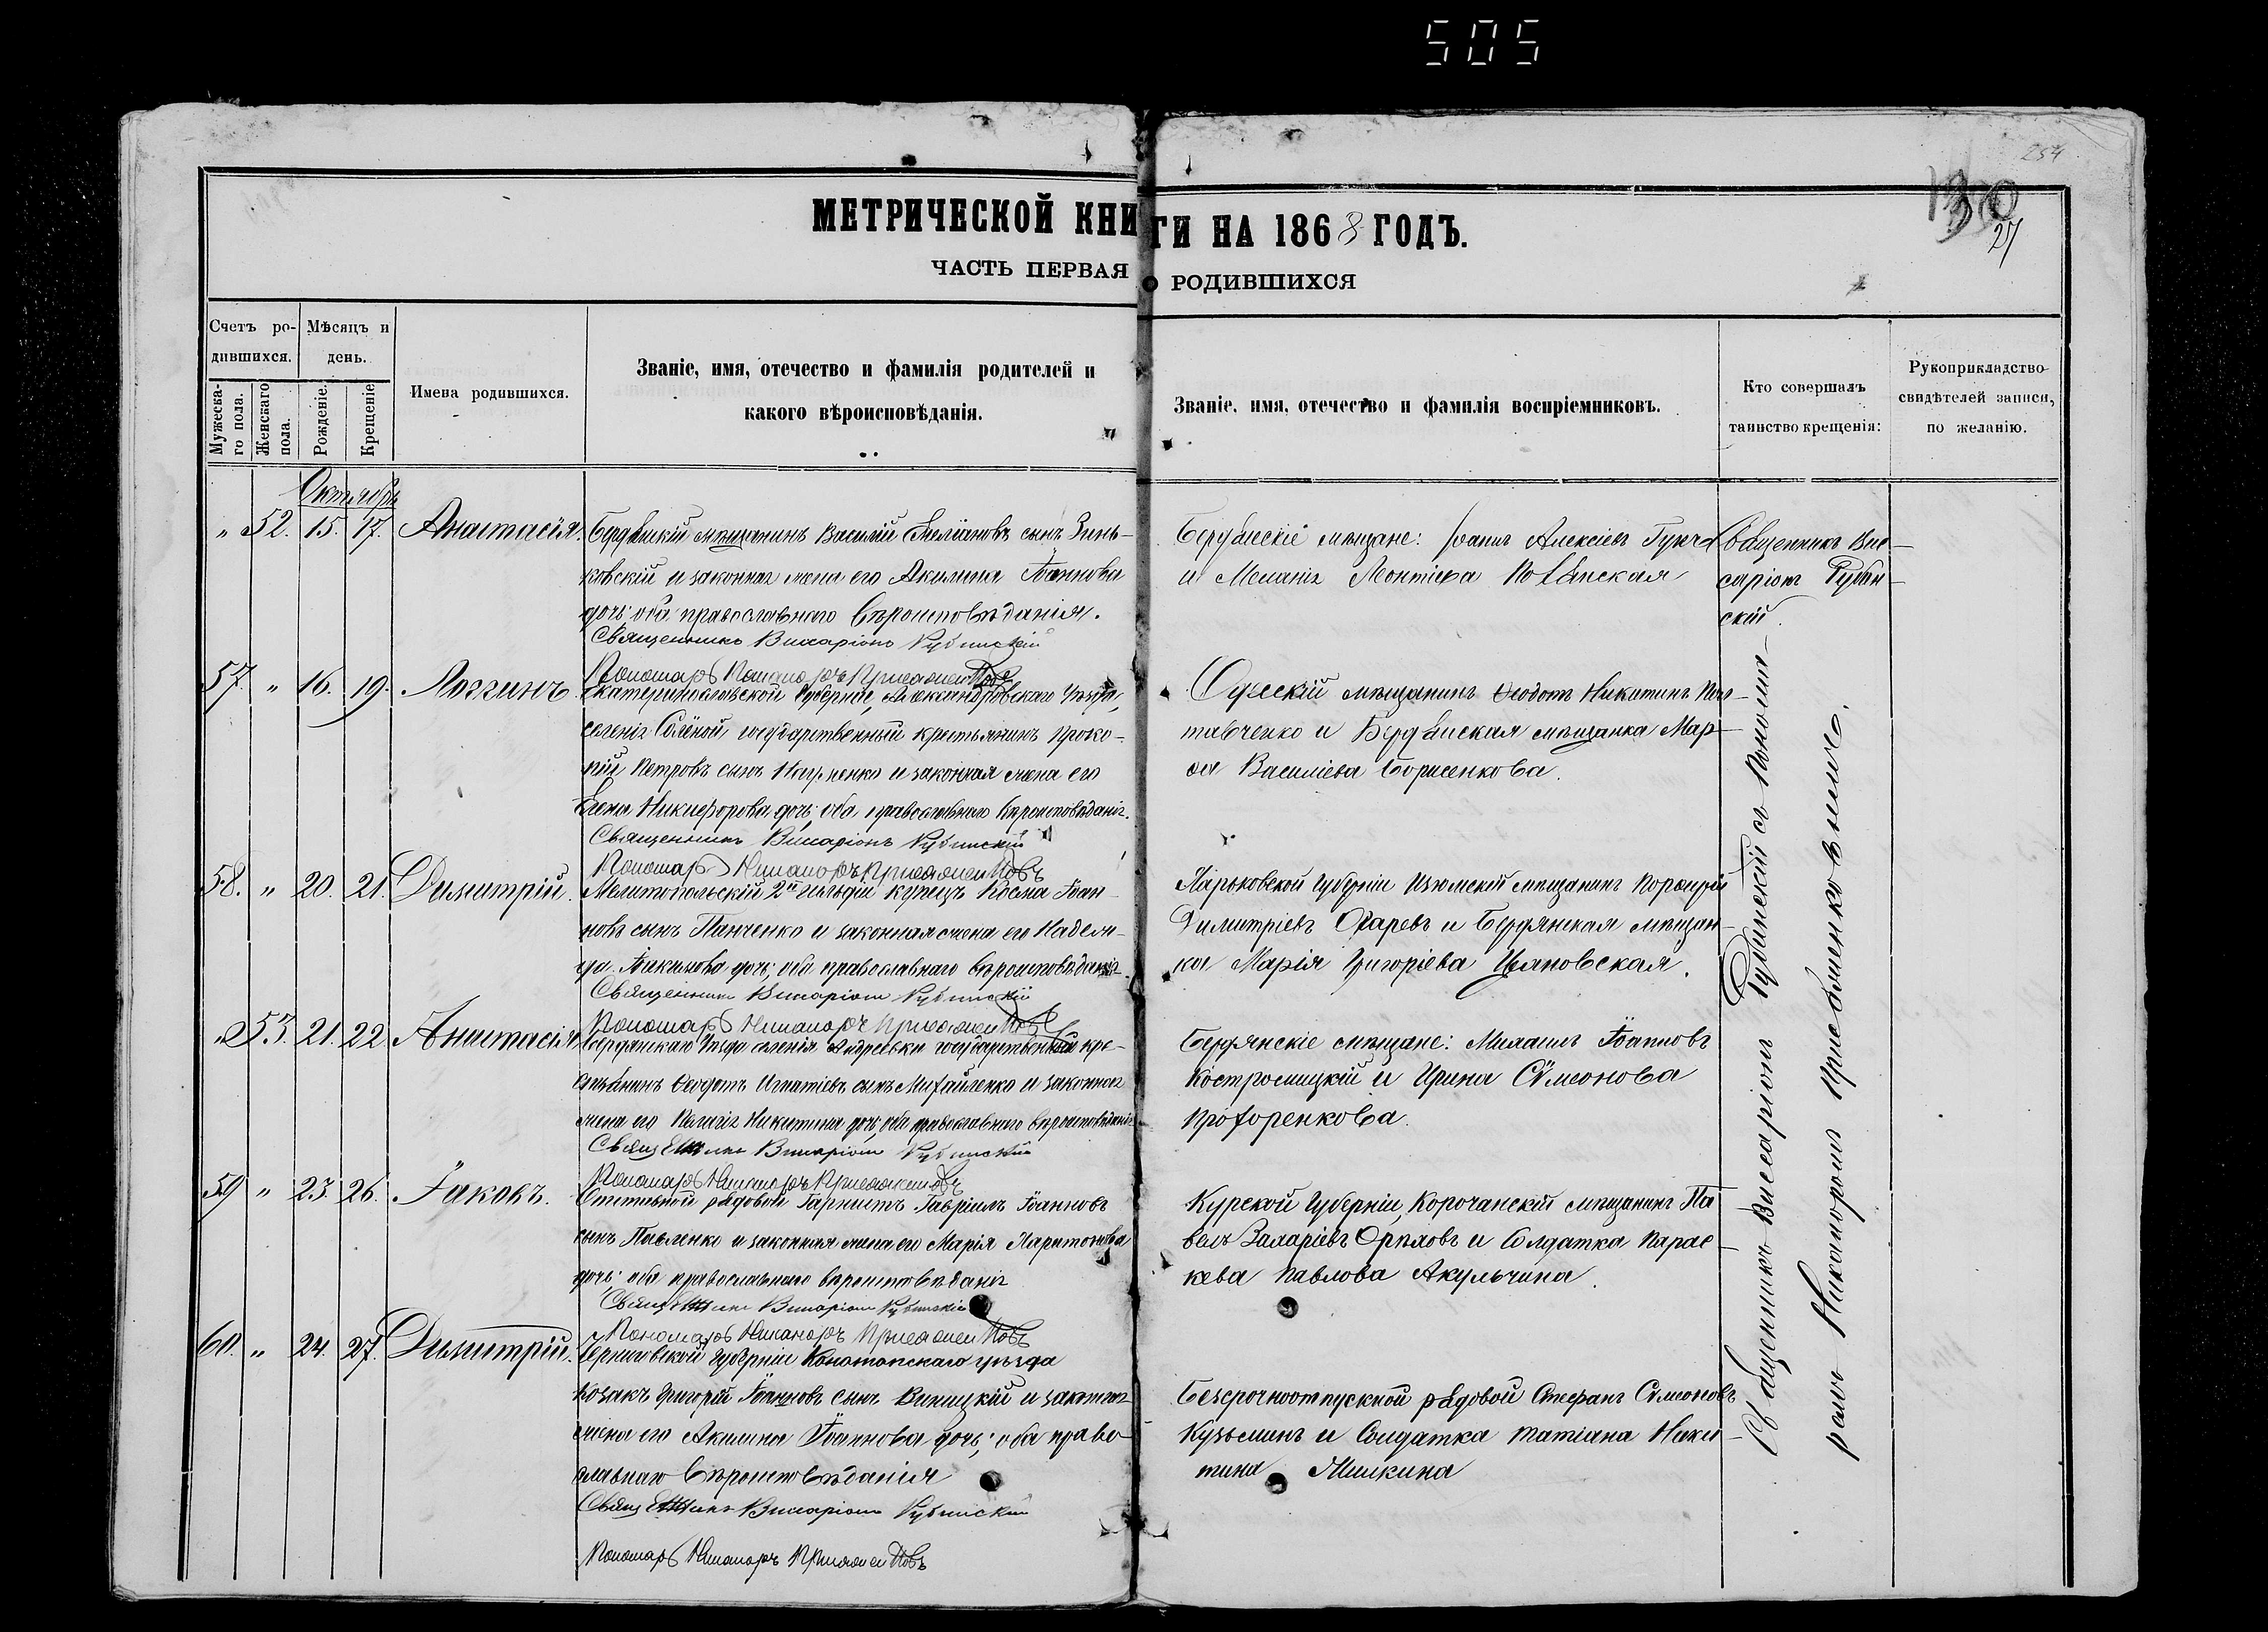 505
254
27
МЕТРИЧЕСКОЙ КНИГИ НА 1868 ГОДЪ.
ЧАСТЬ ПЕРВАЯ О РОДИВШИХСЯ
Счетъ ро-
дившихся.
Мужеска-
го пола.
Женскаго
пола.
Мѣсяцъ и
день.
Рожденіе.
Крещеніе
Имена родившихся.
Званіе, имя, отечество и фамилія родителей и
какого вѣроисповѣданія.
Званіе, имя, отечество и фамилія воспріемниковъ.
Кто совершалъ
таинство крещенія:
Рукоприкладство
свидѣтелей записи,
по желанію.
Октябрь
" 52. 15. 17. Анастасія.
Бердянскій мѣщанинъ Василій Емеліановъ сынъ Зинь-
ковскій и законная жена его Акилина Іоаннова
дочь; оба православнаго вѣроисповѣданія.
Священникъ Виссаріонъ Рубинскій
Пономарь Никаноръ
Бердянскіе мѣщане: Іоаннъ Алексіевъ
и Меланія Леонтіева
Священникъ Вис-
саріонъ Рубин-
скій.
57. " 16. 19. Логгинъ
Екатеринославской Губерніи, Александровскаго Уѣзда,
селенія Солёной, государственный крестьянинъ Проко-
пій Петровъ сынъ Науменко и законная жена его
Елена Никифорова дочь; оба православнаго вѣроисповѣданія.
Священникъ Виссаріонъ Рубинскій
Пономарь Никаноръ
Одесскій мѣщанинъ Ѳеодотъ Никитинъ Пол-
тавченко и Бердянская мѣщанка Мар-
ѳа Василіева Борисенкова.
58. " 20. 21. Димитрій.
Мелитопольскій 2й гильдіи купецъ Косма Іоан-
новъ сынъ Панченко и законная жена его Надеж-
да Іоакимова дочь; оба православнаго вѣроисповѣданія.
Священникъ Виссаріонъ Рубинскій
Пономарь Никаноръ
Харьковской Губерніи Изюмскій мѣщанинъ Порфирій
Димитріевъ и Бердянская мѣщан-
ка Марія Григоріева
" 53. 21. 22. Анастасія
Бердянскаго Уѣзда селенія Андреевки государственный кре-
стьянинъ Ѳеодотъ Игнатіевъ сынъ Михайленко и законная
жена его Пелагія Никитина дочь; оба православнаго вѣроисповѣданія
Священникъ Виссаріонъ Рубинскій
Пономарь Никаноръ
Бердянскіе мѣщане: Михаилъ Іоанновъ
Костромицкій и Ирина Сѵмеонова
Прохоренкова.
59 " 23. 26. Іаковъ.
Отставной рядовой Гарнистъ Гавріилъ Іоанновъ
сынъ Павленко и законная жена его Марія Харитонова
дочь; оба православнаго вѣроисповѣданія
Священникъ Виссаріонъ Рубинскій
Пономарь Никаноръ
Курской Губерніи, Корочанскій мѣщанинъ Па-
велъ Захаріевъ Орловъ и Солдатка Парас-
кева Павлова Акульчина.
60. " 24. 27. Димитрій.
Черниговской губерніи Конотопскаго уѣзда
Козакъ Григорій Іоанновъ сынъ Виницкій и законная
жена его Акилина Іоаннова дочь; оба право-
славнаго вѣроисповѣданія
Священникъ Виссаріонъ Рубинскій
Пономарь Никаноръ
Безсрочноотпускной рядовой Стефанъ Сѵмеоновъ
Кузьминъ и Солдатка Татіана Ники-
тина
Священникъ Виссаріонъ Рубинскій съ Понома-
ремъ Никаноромъ